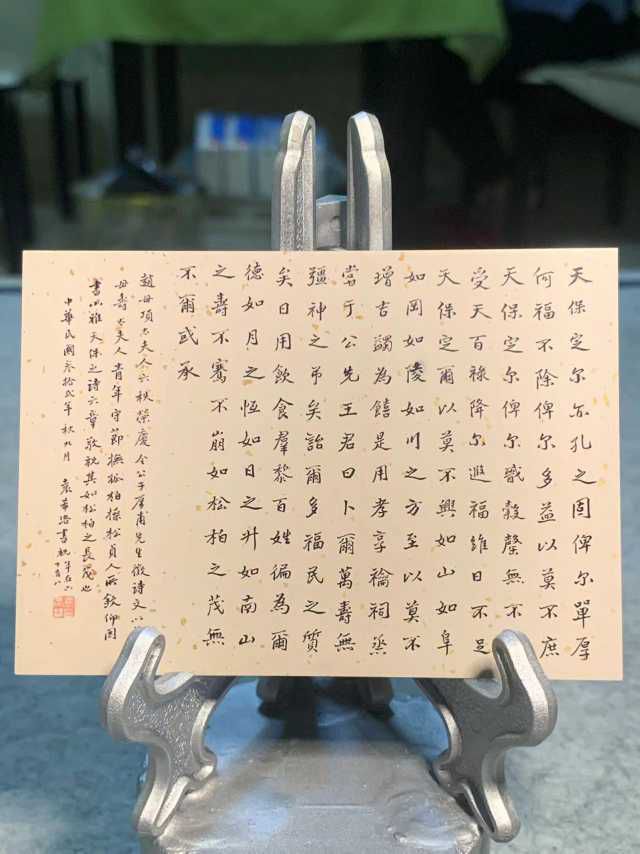 天保定尔亦孔之固俾尔單厚
何福不除俾尔多益以莫不庶
天保定尔俾尔戩穀罄無不
受天百祿降尔遐福維日不足
天保定爾以莫不興如山如阜
如岡如陵如川之方至以莫不
增吉蠲為饎是用孝享禴祠烝
嘗于公先王君曰卜爾萬壽無
彊神之弔矣詒爾多福民之質
矣日用飲食羣黎百姓徧為爾
德如月之恆如日之升如南山
之壽不騫不崩如松柏之茂無
不爾或承
趙母項太夫人六秩榮慶令公子厚甫先生徵詩文以
母壽太夫人青年守節撫孤柏操松貞人所欽仰因
書小雅天保之詩六章敬祝其如松柏之長茂也
中華民國叁拾貳年秋九月 袁希洛書祝年在六十有八